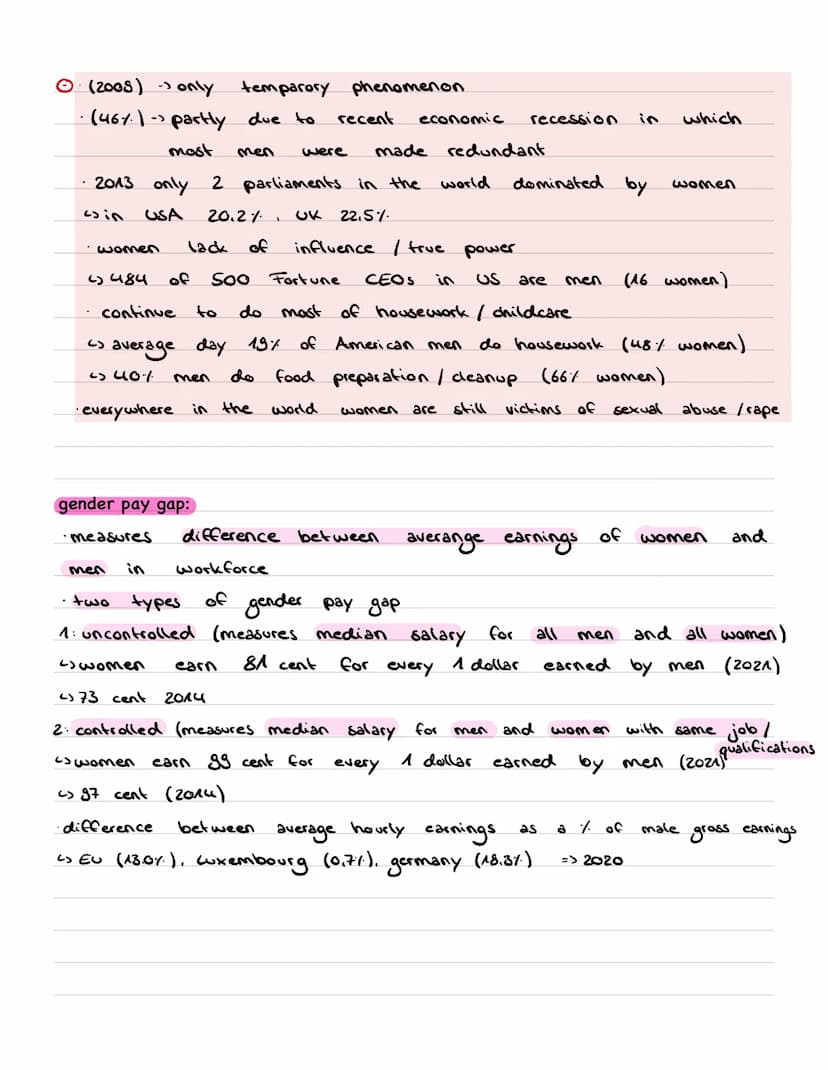 ⊖ · (2009) -> only temparory phenomenon
· (46%) -> partly due to recent economic recession in which
most men were made redundant
· 2013 only 2 parliaments in the world dominated by women
↳ in USA 20.2%, UK 22,5%
· women lack of influence / true power
↳ 484 of 500 Fortune CEOs in US are men (16 women)
· continue to do most of housework / childcare
↳ average day 19% of American men do housework (48% women)
↳ 40% men do food preparation / cleanup (66% women)
· everywhere in the world women are still victims of sexual abuse / rape
gender pay gap:
· measures difference between averange earnings of women and
men in workforce
· two types of gender pay gap
1: uncontrolled (measures median salary for all men and all women)
↳ women earn 81 cent for every 1 dollar earned by men (2021)
↳ 73 cent 2014
2: controlled (measures median salary for men and women with same job /
qualifications
↳ women earn 99 cent for every 1 dollar earned by men (2021)
↳ 97 cent (2014)
· difference between average hourly earnings as a % of male gross earnings
↳ EU (13.0%), Luxembourg (0,7%), germany (18.3%) => 2020